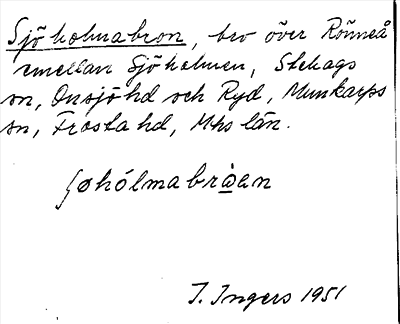 Sjöholmabron, bro över Rönneå
emellan Sjöholmen, Stehags
sn, Onsjö hd och Ryd, Munkarps
sn, Frosta hd, Mhs län.
ʃøhólmabrò̲an
I. Ingers 1951